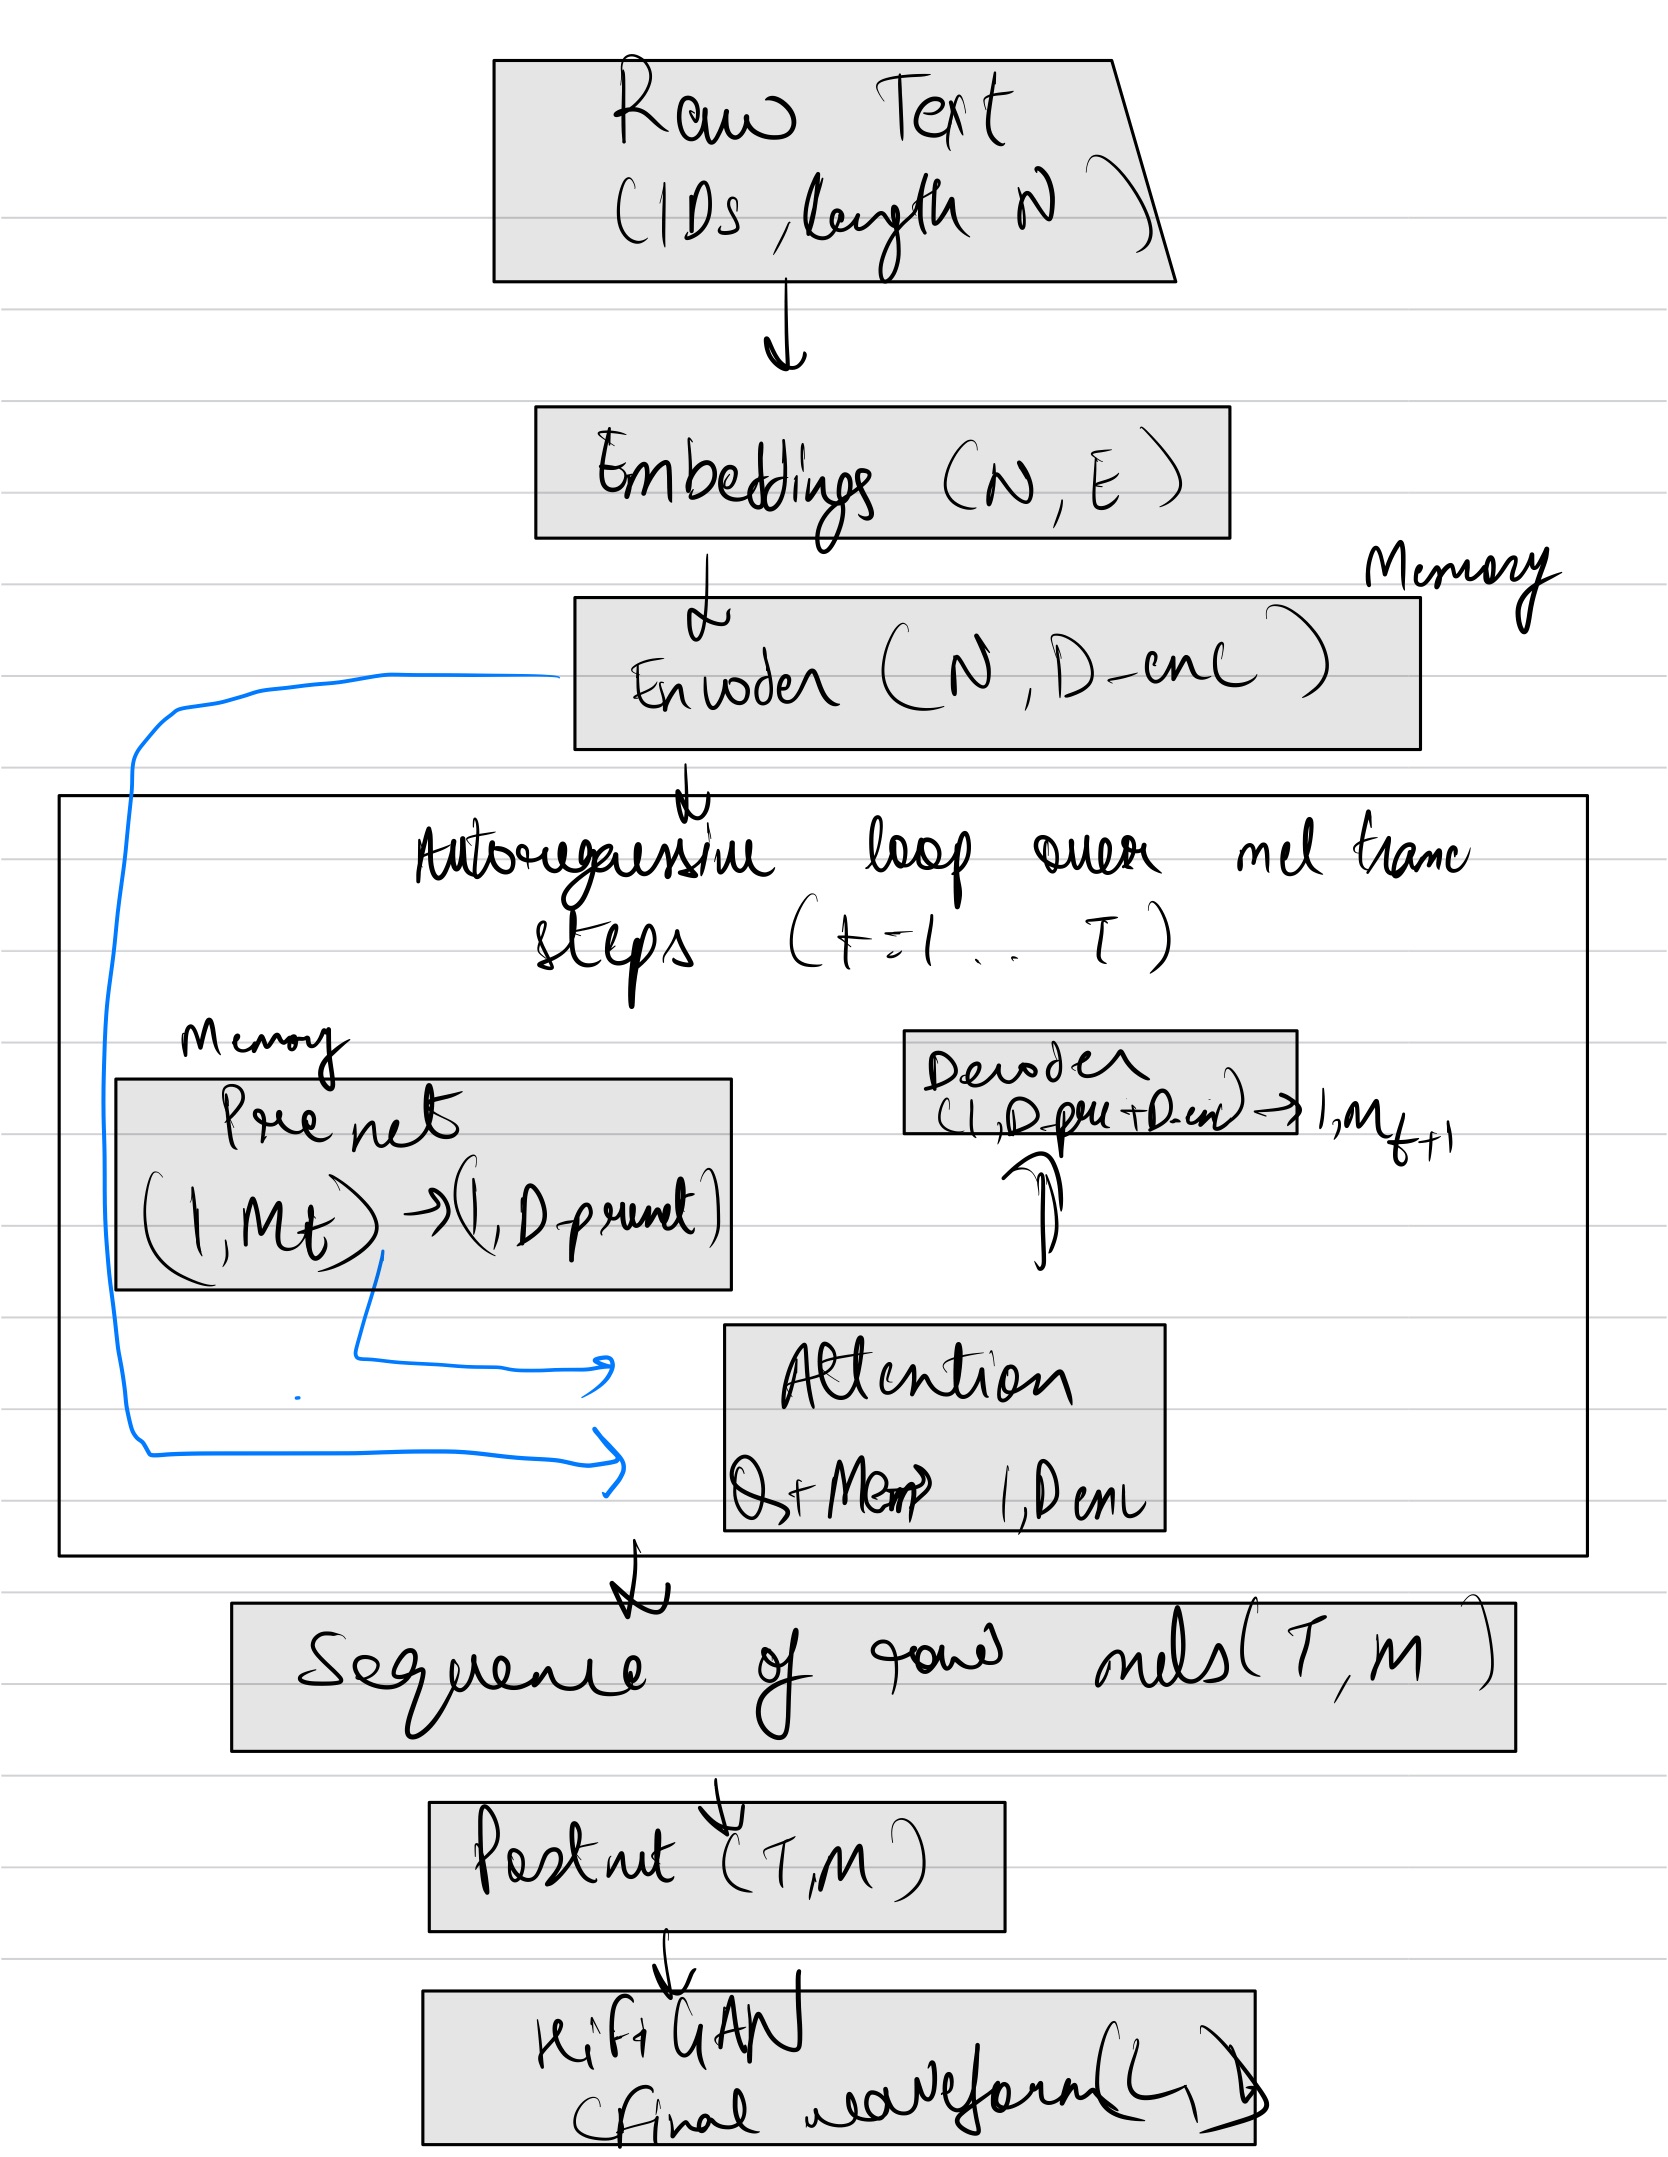 Raw Text
(IDs, length N)
Embeddings (N, E)
Memory
Encoder (N, D-enc)
Autoregressive loop over mel frame
steps (t=1... T)
Memory
Prenet
(1, Mt) → (1, D-prenet)
Decoder
(1, D-pre+D-enc) → 1, Mt+1
Attention
Q+Mem 1, Denc
Sequence of raw mels (T, M)
Postnet (T, M)
HiFi GAN
(Final waveform (L,))